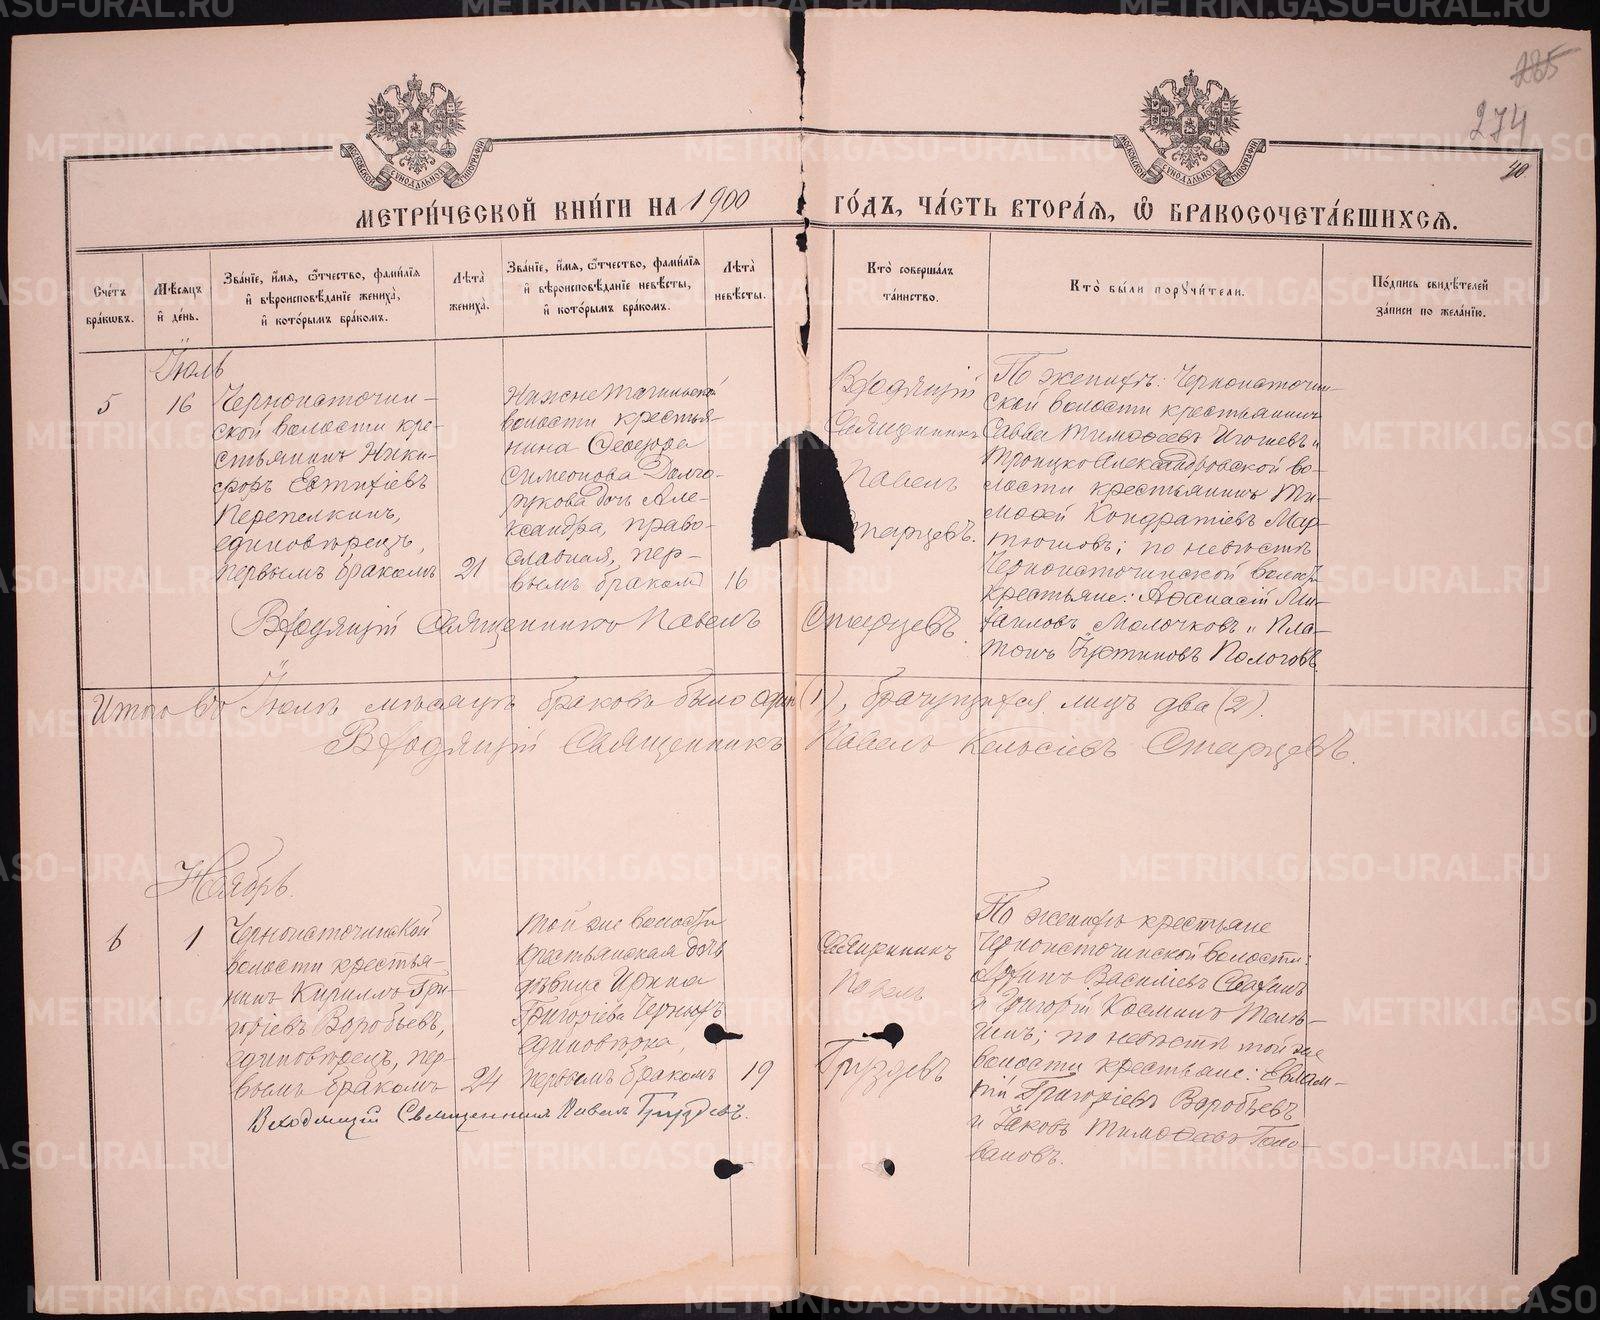 185
274
40
МОСКОВСКОЙ СѴНОДАЛЬНОЙ ТИПОГРАФІИ
МОСКОВСКОЙ СѴНОДАЛЬНОЙ ТИПОГРАФІИ
МЕТРИ́ЧЕСКОЙ КНИ́ГИ НА 1900 ГО́ДЪ, ЧА́СТЬ ВТОРА́Я, Ѽ БРАКОСОЧЕТА́ВШИХСЯ.
Сче́тъ
бра́кѡвъ.
Мѣ́сяцъ
и҆ де́нь.
Зва́нїе, и҆́мя, ѻ҆́тчество, фами́лїя
и҆ вѣроисповѣ́данїе жениха̀,
и҆ кото́рымъ бра́комъ.
Лѣ́та
жениха̀.
Зва́нїе, и҆́мя, ѻ҆́тчество, фами́лїя
и҆ вѣроисповѣ́данїе невѣ́сты,
и҆ кото́рымъ бра́комъ.
Лѣ́та
невѣ́сты.
Кто̀ соверша́лъ
та́инство.
Кто̀ бы́ли порꙋчи́тели.
По́дпись свидѣ́телей
за́писи по жела́нїю.
Іюль
5
16
Черноисточин-
ской волости кре-
стьянинъ Ники-
форъ Евтихіевъ
Перепелкинъ,
единовѣрецъ,
первымъ бракомъ
21
Нижне Тагильской
волости крестья-
нина Ѳеодора
Симеонова Долго-
рукова дочь Але-
ксандра, право-
славная, пер-
вымъ бракомъ
16
Входящій
Священникъ
Павелъ
Старцевъ.
По женихѣ: Черноисточин-
ской волости крестьянинъ
Савва Тимоѳеевъ Игошевъ и
Троицко Александровской во-
лости крестьянинъ Ти-
моѳей Кондратіевъ Мар-
тюшовъ; по невѣстѣ
Черноисточинской волости
крестьяне: Аѳанасій Ми-
хаиловъ Молочковъ и Пла-
тонъ Пологовъ
Входящій Священникъ Павелъ Старцевъ.
Итого въ Іюлѣ мѣсяцѣ браковъ было одинъ (1), брачущихся лицъ два (2).
Входящій Священникъ Павелъ Кельсіевъ Старцевъ.
Ноябрь.
6
1
Черноисточинской
волости крестья-
нинъ Кириллъ Гри-
горіевъ Воробьевъ,
единовѣрецъ, пер-
вымъ бракомъ
24
той же волости
крестьянская дочь
дѣвица Ирина
Григоріева Черныхъ
единовѣрка,
первымъ бракомъ
19
Священникъ
Павелъ
Груздевъ
По женихѣ крестьяне
Черноисточинской волости:
Василіевъ
и Григорій Косминъ Тель-
; по невѣстѣ той же
волости крестьяне: Евлам-
пій Григоріевъ Воробьевъ
и Іаковъ Тимоѳеевъ Голо-
вановъ.
Входящій Священникъ Павелъ Груздевъ.
METRIKI.GASO-URAL.RU